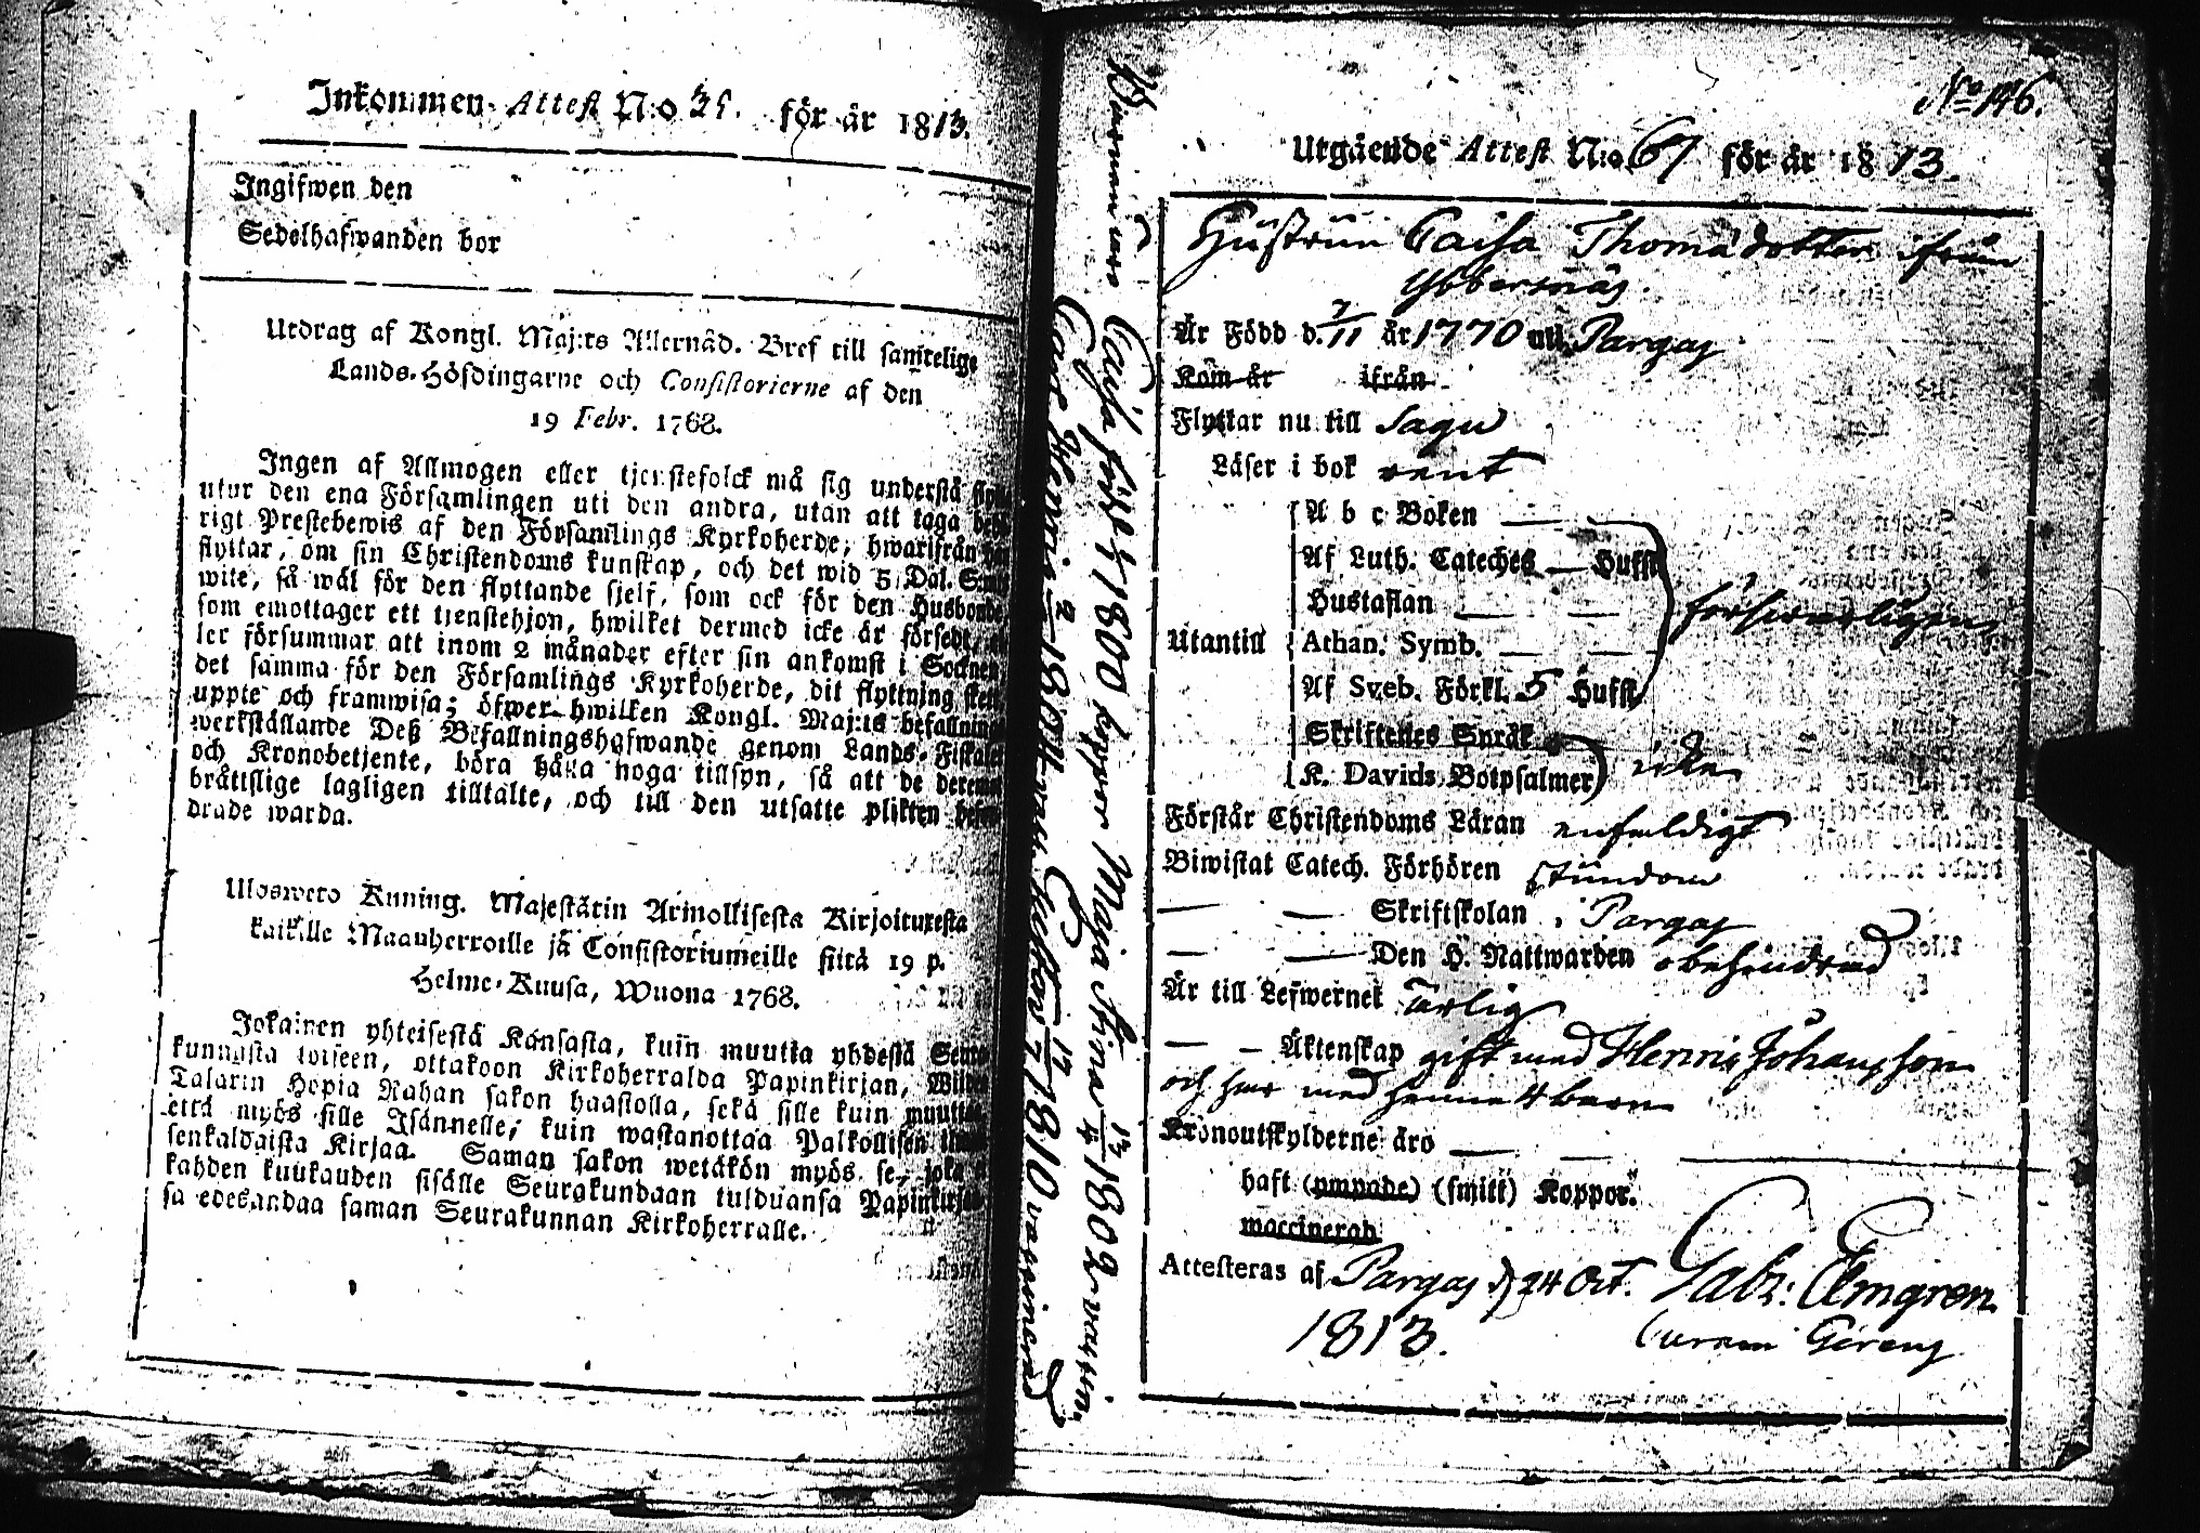 Inkommen Attest N:o 35. för år 1813.
Ingifwen den
Sedelhafwanden bor
Utdrag af Kongl. Maj:ts Allernåd. Bref till samtelige
Lands-Höfdingarne och Consistorierne af den
19 Febr. 1768.
Ingen af Allmogen eller tjenstefolck må sig understå
utur den ena Församlingen uti den andra, utan att taga
rigt Prestebewis af den Församlings Kyrkoherde, hwarifrån
flyttar, om sin Christendoms kunskap, och det wid 5 Dal. Smt
wite, så wäl för den flyttande sjelf, som ock för den Husbonde
som emottager ett tjenstehjon, hwilket dermed icke är försedt,
ler försummar att inom 2 månader efter sin ankomst i Socknen
det samma för den Församlings Kyrkoherde, dit flyttning
uppte och framwisa; öfwer hwilken Kongl. Maj:ts befallning
werkställande Deß Befallningshafwande genom Lands-Fiskaler
och Kronobetjente, böra hålla noga tillsyn, så att de deremot
bråttslige lagligen tilltalte, och till den utsatte plikten
drade warda.
Ulosweto Kuning. Majestätin Armollisesta Kirjoituxesta
kaikille Maanherroille ja Consistoriumeille siitä 19 p.
Helme-Kuusa, Wuona 1768.
Jokainen yhteisestä Kansasta, kuin muutta yhdestä
kunnasta toiseen, ottakoon Kirkoherralda Papinkirjan,
Talarin Hopia Rahan sakon haastolla, sekä sille kuin
että myös sille Isännelle, kuin wastanottaa Palkollisen
senkaldaista Kirjaa. Saman sakon wetäkön myös se, joka
kahden kuukauden sisälle Seurakundaan tulduansa
sa edesandaa saman Seurakunnan Kirkoherralle.
Barnen äro Caisa född 1800 koppor Maja Stina 13/4 1802 vaccin.
Carl Henric 2 1804 1810 vaccinerad
No 146.
Utgående Attest N:o 67 för år 1813.
Hustrun Caisa Thomadotter ifrån
Ybbersnäs.
Är Född d. 7/11 år 1770 uti Pargas
Kom år ifrån
Flyttar nu till Sagu
Läser i bok rent
A b c Boken
Af Luth. Cateches Hufst
Hustaflan
Utantill Athan. Symb. försvarligen
Af Sveb. Förkl. 5 Hufst
Skriftenes Språk
K. Davids Botpsalmer icke
Förstår Christendoms Läran enfaldigt
Biwistat Catech. Förhören stundom
Skriftskolan i Pargas
Den H. Nattwarden obehindrad
Är till Lefwernet ärlig
Äktenskap gift med Henric Johansson
och har med henne 4 barn
Kronoutskylderne äro
haft (ympade) (smitt) Koppor.
waccinerad
Attesteras af Pargas d 24 Oct. Gabr: Elmgren
1813. Curam Gerens